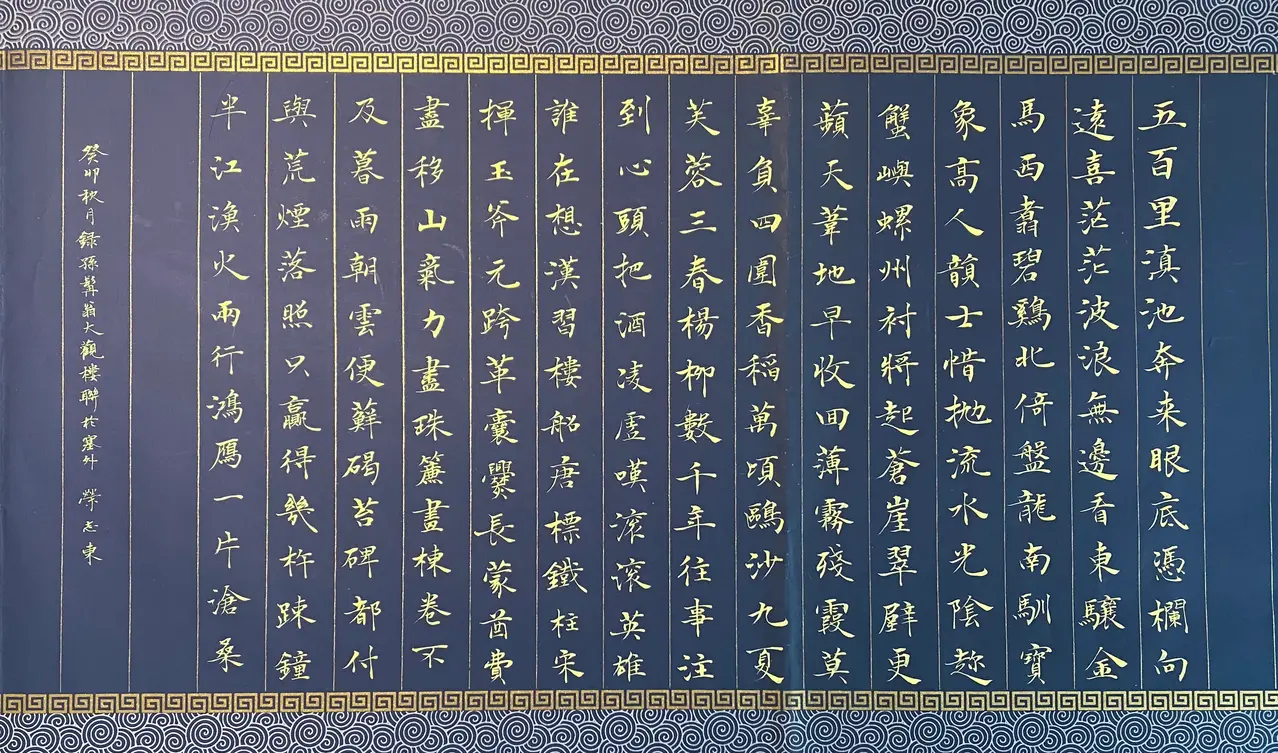 五百里滇池奔来眼底憑欄向
遠喜茫茫波浪無邊看東驤金
馬西翥碧鷄北倚盤龍南馴寶
象高人韻士惜抛流水光陰趂
蟹嶼螺州衬將起蒼崖翠壁更
蘋天葦地早收回薄霧殘霞莫
辜負四圍香稻萬頃鷗沙九夏
芙蓉三春楊柳數千年往事注
到心頭把酒凌虚嘆滚滚英雄
誰在想漢習樓船唐標鐵柱宋
揮玉斧元跨革囊爨長蒙酋費
盡移山氣力盡珠簾畫棟卷不
及暮雨朝雲便蘚碣苔碑都付
與荒煙落照只贏得幾杵踈鐘
半江漁火兩行鴻鴈一片滄桑
癸卯秋月録孫髯翁大觀樓聯於塞外 榮志東